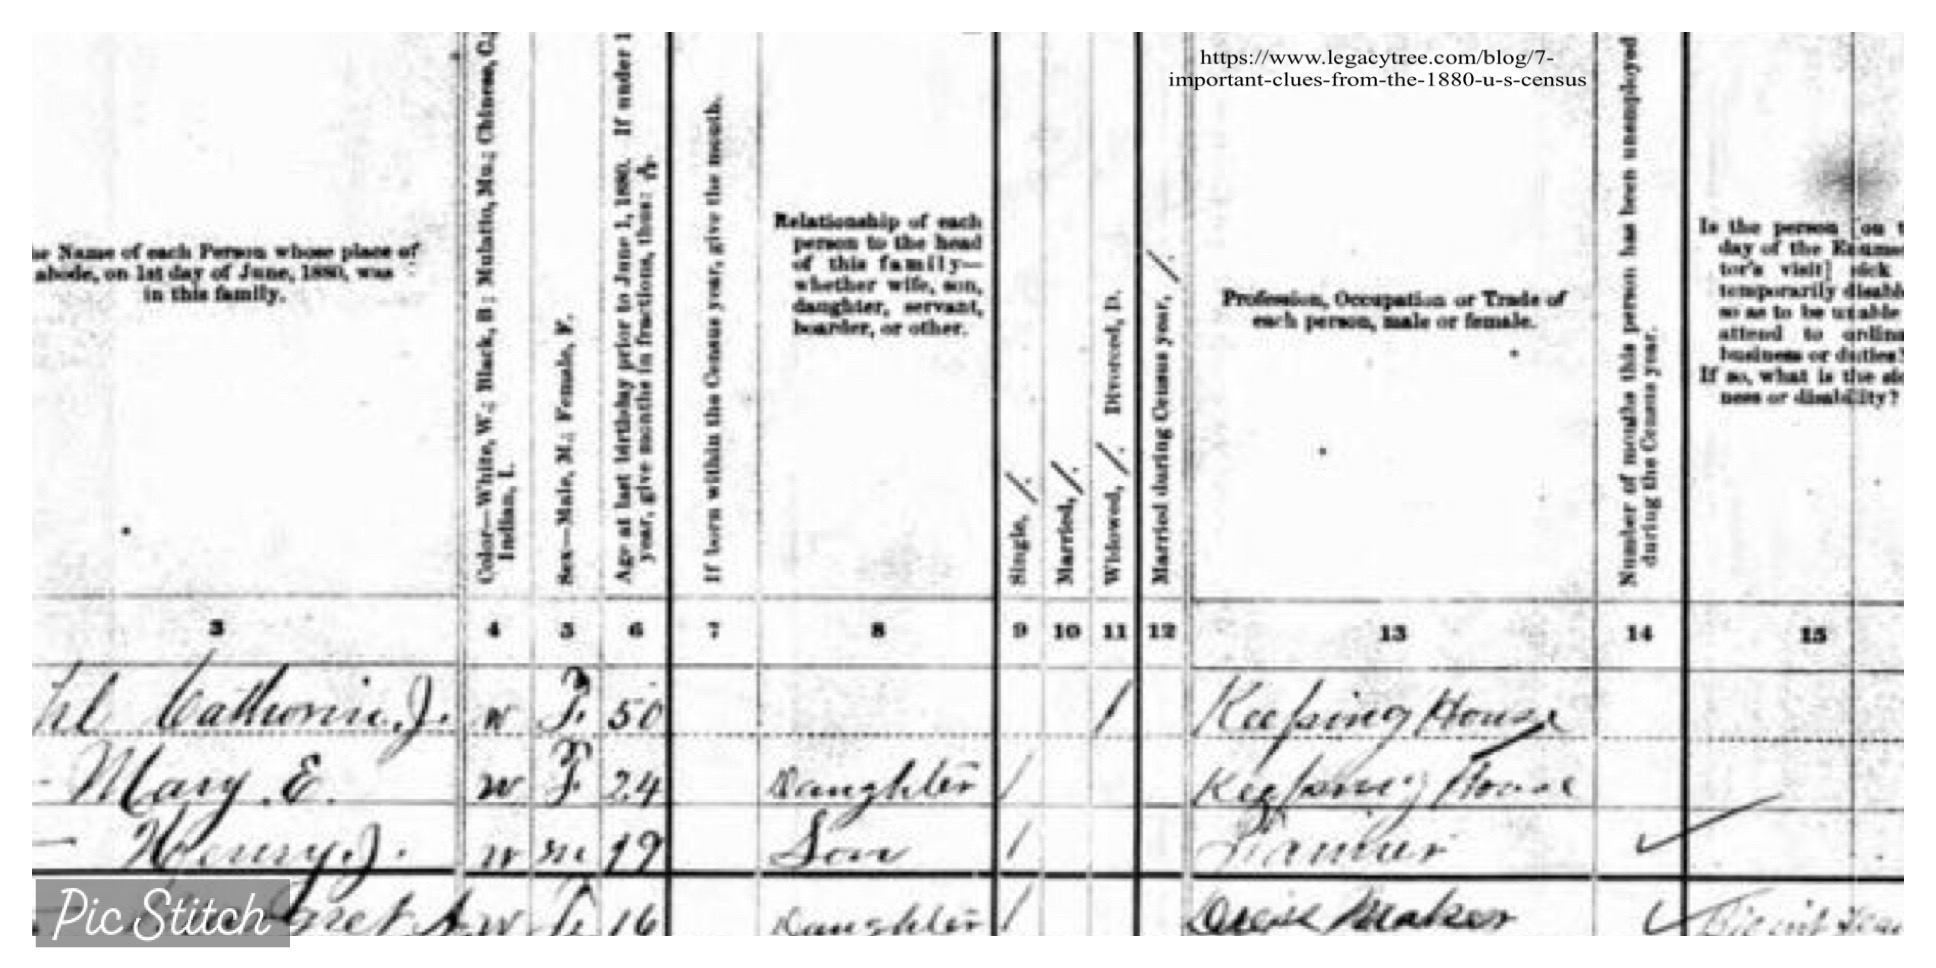 https://www.legacytree.com/blog/7-
important-clues-from-the-1880-u-s-census
Name of each Person whose place of
abode, on 1st day of June, 1880, was
in this family.
Color—White, W.; Black, B; Mulatto, Mu.; Chinese, C.;
Indian, I.
Sex—Male, M.; Female, F.
Age at last birthday prior to June 1, 1880. If under 1
year, give months in fractions, thus:
If born within the Census year, give the month.
Relationship of each
person to the head
of this family—
whether wife, son,
daughter, servant,
boarder, or other.
Single, /.
Married, /.
Widowed, /. Divorced, D.
Married during Census year, /.
Profession, Occupation or Trade of
each person, male or female.
Number of months this person has been unemployed
during the Census year.
Is the person [on
day of the
tor's visit] sick
temporarily
so as to be unable
attend to
business or duties?
If so, what is the
ness or disability?
3 4 5 6 7 8 9 10 11 12 13 14 15
Catherine J. W F. 50 / Keeping House
Mary E. W F 24 Daughter / Keeping House
Henry J. W m 19 Son /
W F. 16 Daughter / Dress Maker
Pic Stitch